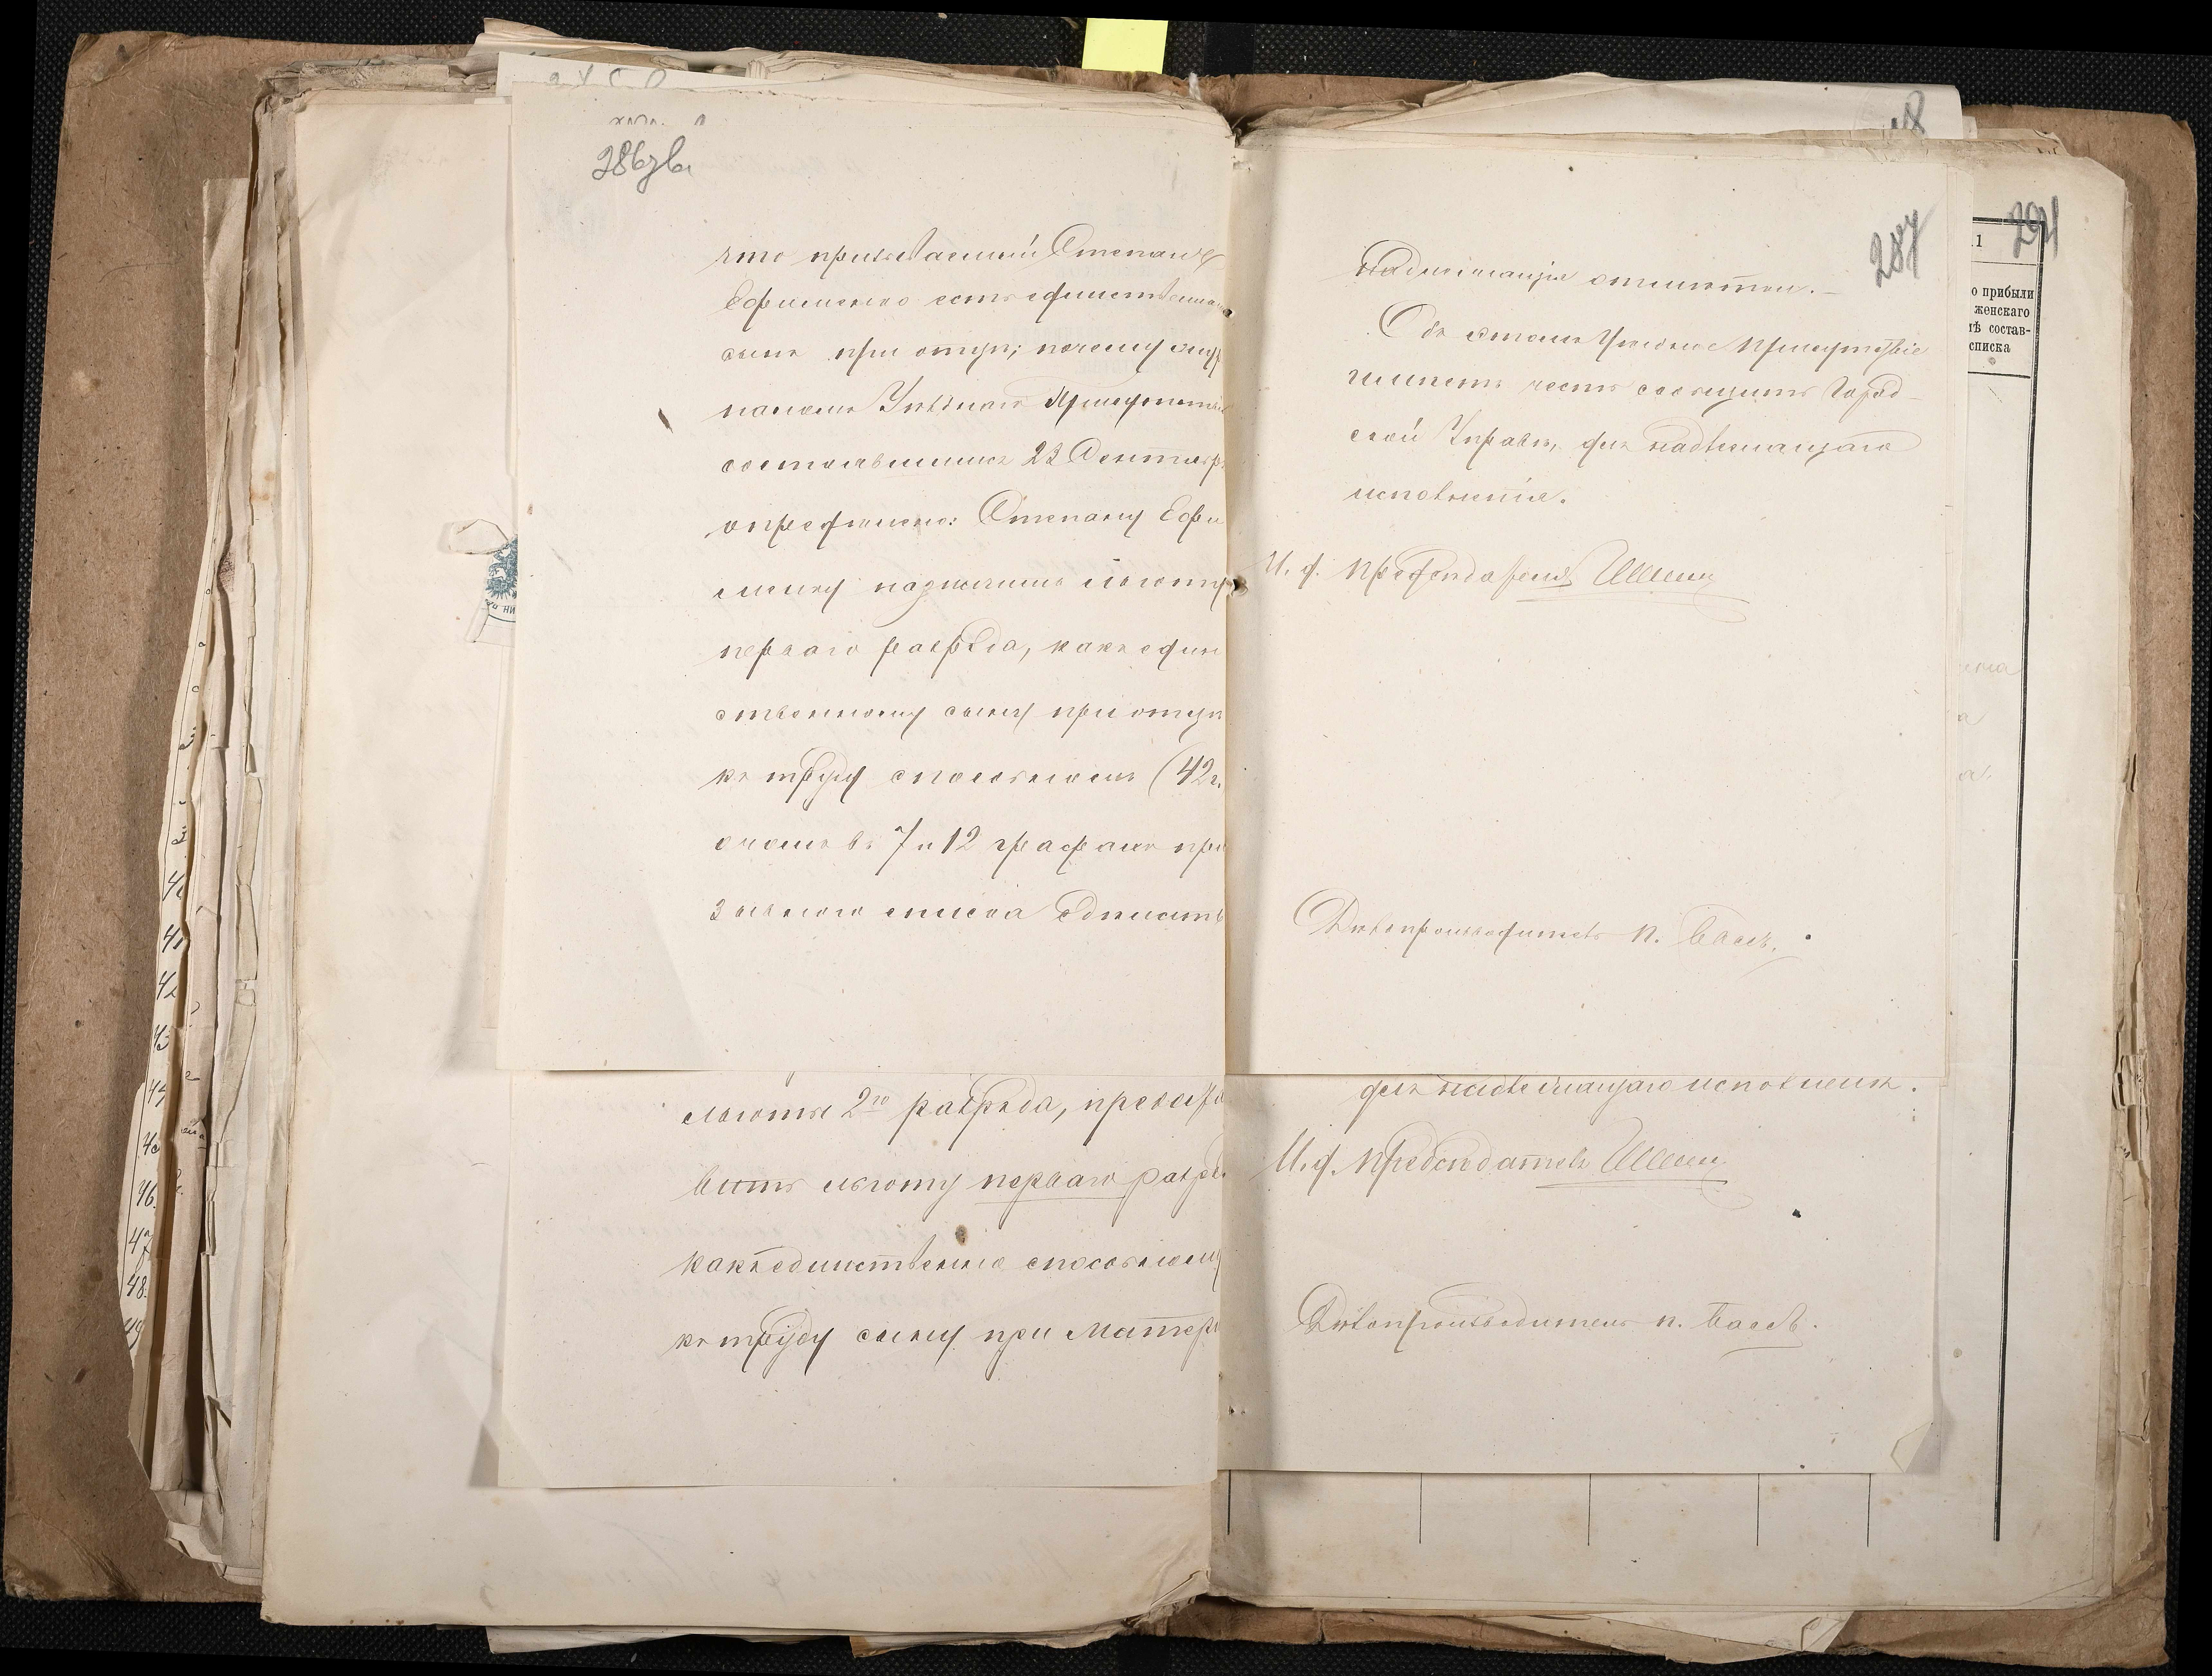 286 зв.
что призываемый Степанъ
Ефименко есть единственный
сынъ при отцѣ; почему
Уѣзднаго Присутствія
состоявшимся 23 Сентября
опредѣлено: Степану Ефи
менку назначить льготу
перваго разряда, какъ един
ственному сыну при отцѣ
къ труду способномъ (42 г.
о чемъ въ 7 и 12 графахъ при
зывного списка сдѣлать
льготы 2го разряда, предоста
вить льготу перваго разряда
какъ единственно способному
къ труду сыну при матери
287
надлежащія отмѣтки.
Объ этомъ Уѣздное Присутствіе
имѣетъ честь сообщить Город
ской Управѣ, для надлежащаго
исполненія.
И. д. Предсѣдателя
Дѣлопроизводитель П.
для надлежащаго исполненія.
И. д. Предсѣдателя
Дѣлопроизводитель П.
291
1
о прибыли
женскаго
состав-
списка
40
41
42
43
44
46.
47
48.
49